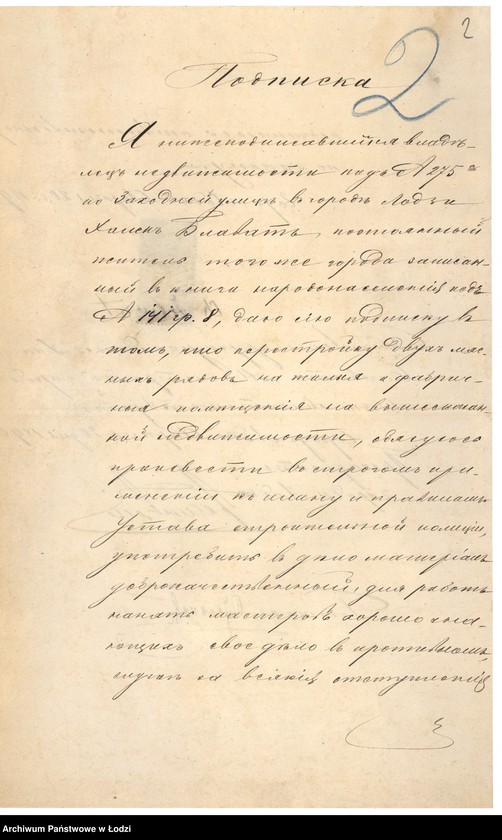 2
2
Подписка
Я нижеподписавшійся владѣ-
лецъ недвижимости подъ № 275а
по Заходней улицѣ въ городѣ Лодзи
Блаватъ, постоянный
житель того же города записан-
ный въ книга народонаселенія подъ
№ 141 гр. 8, даю сію подписку въ
томъ, что перестройку двухъ мяс-
ныхъ рядовъ на жилыя и фабрич-
ныя помѣщенія на вышесказан-
ной недвижимости, обязуюсь
произвести въ строгомъ при-
мѣненіи къ плану и правиламъ
Устава строительной полиціи,
употребить въ дѣло матеріалъ
доброкачественный, для работъ
нанять мастеровъ хорошо зна-
ющихъ свое дѣло въ противномъ
случаѣ за всякія отступленія
Archiwum Państwowe w Łodzi